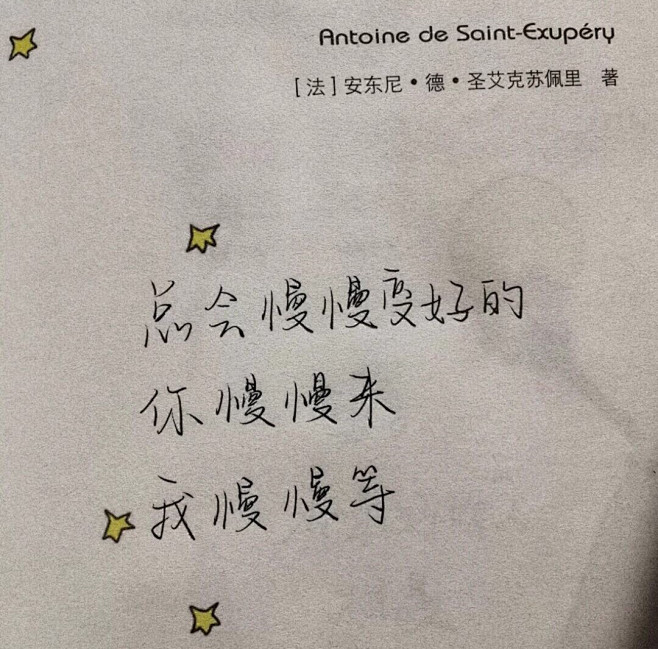 Antoine de Saint-Exupéry
[法]安东尼·德·圣艾克苏佩里 著
总会慢慢变好的
你慢慢来
我慢慢等